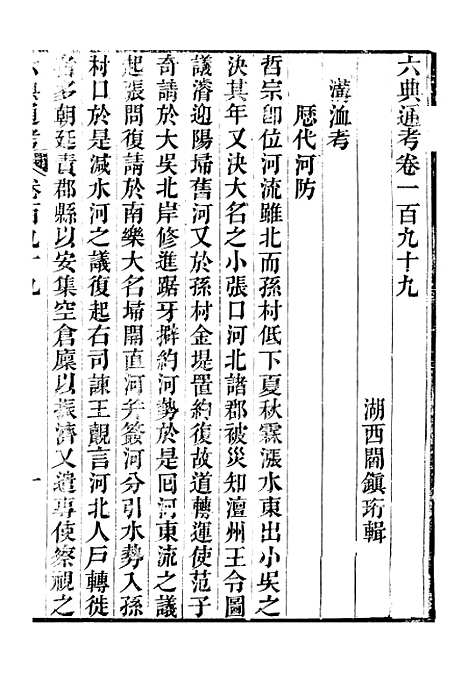 六典通考卷一百九十九
湖西閻鎮珩輯
溝洫考
歷代河防
哲宗卽位河流雖北而孫村低下夏秋霖漲水東出小吳之
決其年又決大名之小張口河北諸郡被災知澶州王令圖
議濬迎陽埽舊河又於孫村金堤置約復故道轉運使范子
奇請於大吳北岸修進鋸牙擗約河勢於是囘河東流之議
起張問復請於南樂大名埽開直河幷簽河分引水勢入孫
村口於是減水河之議復起右司諫王覿言河北人戶轉徙
者多朝廷責郡縣以安集空倉廩以振濟又遣專使察視之
六典通考 卷百九十九 一